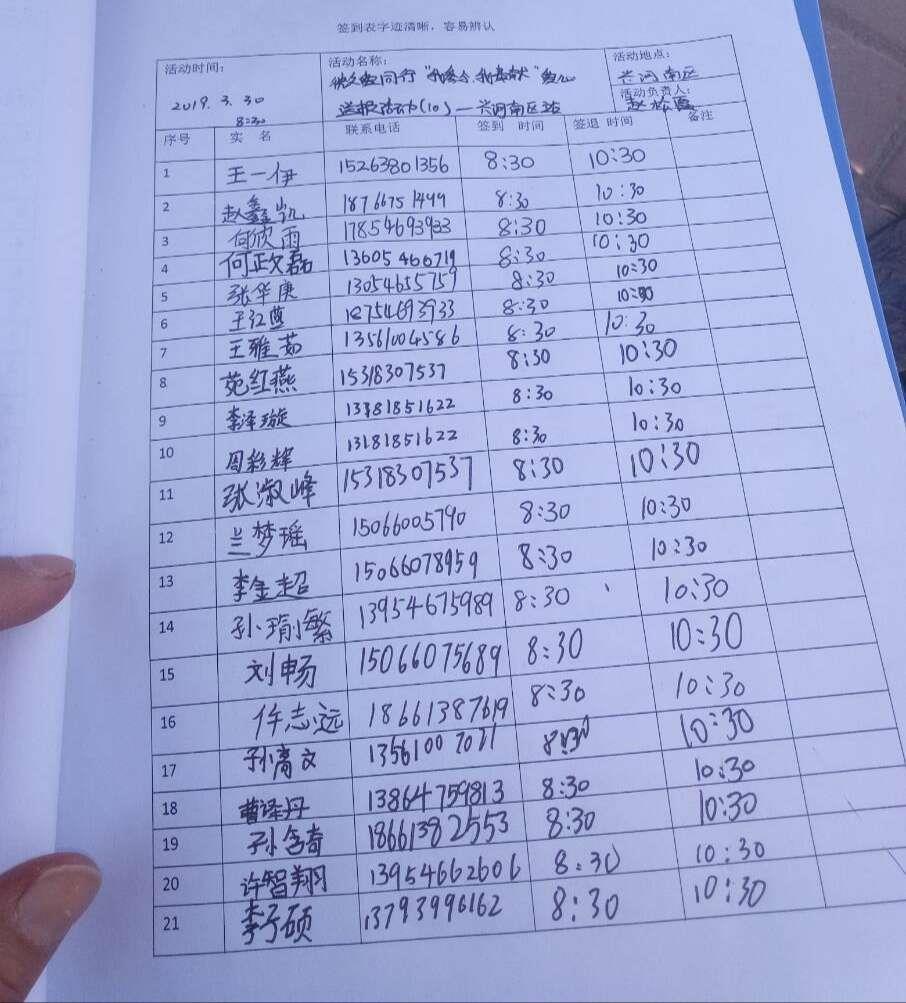 签到表字迹清晰，容易辨认
活动时间： 2019. 3. 30 8:30
活动名称： 同行 "我参与.我奉献" 爱心
送报活动(10) — 兴河南区站
活动地点： 兴河南区
活动负责人： 赵
序号 实 名 联系电话 签到 时间 签退 时间 备注
1 王一伊 15263801356 8:30 10:30
2 赵鑫凯 18766751499 8:30 10:30
3 何欣雨 17854693933 8:30 10:30
4 何政磊 13605466719 8:30 10:30
5 张华庚 13054655759 8:30 10:30
6 王红 18754693933 8:30 10:30
7 王雅茹 13561004586 8:30 10:30
8 苑红燕 15318307537 8:30 10:30
9 李泽璇 13181851622 8:30 10:30
10 周彩辉 13181851622 8:30 10:30
11 张淑峰 15318307537 8:30 10:30
12 兰梦瑶 15066005790 8:30 10:30
13 李金超 15066078959 8:30 10:30
14 孙瑜繁 13954675989 8:30 10:30
15 刘畅 15066075689 8:30 10:30
16 任志远 18661387619 8:30 10:30
17 孙高文 13561007021 8:30 10:30
18 曹译丹 13864759813 8:30 10:30
19 孙含奇 18661382553 8:30 10:30
20 许智翔 13954662606 8:30 10:30
21 李子硕 13793996162 8:30 10:30